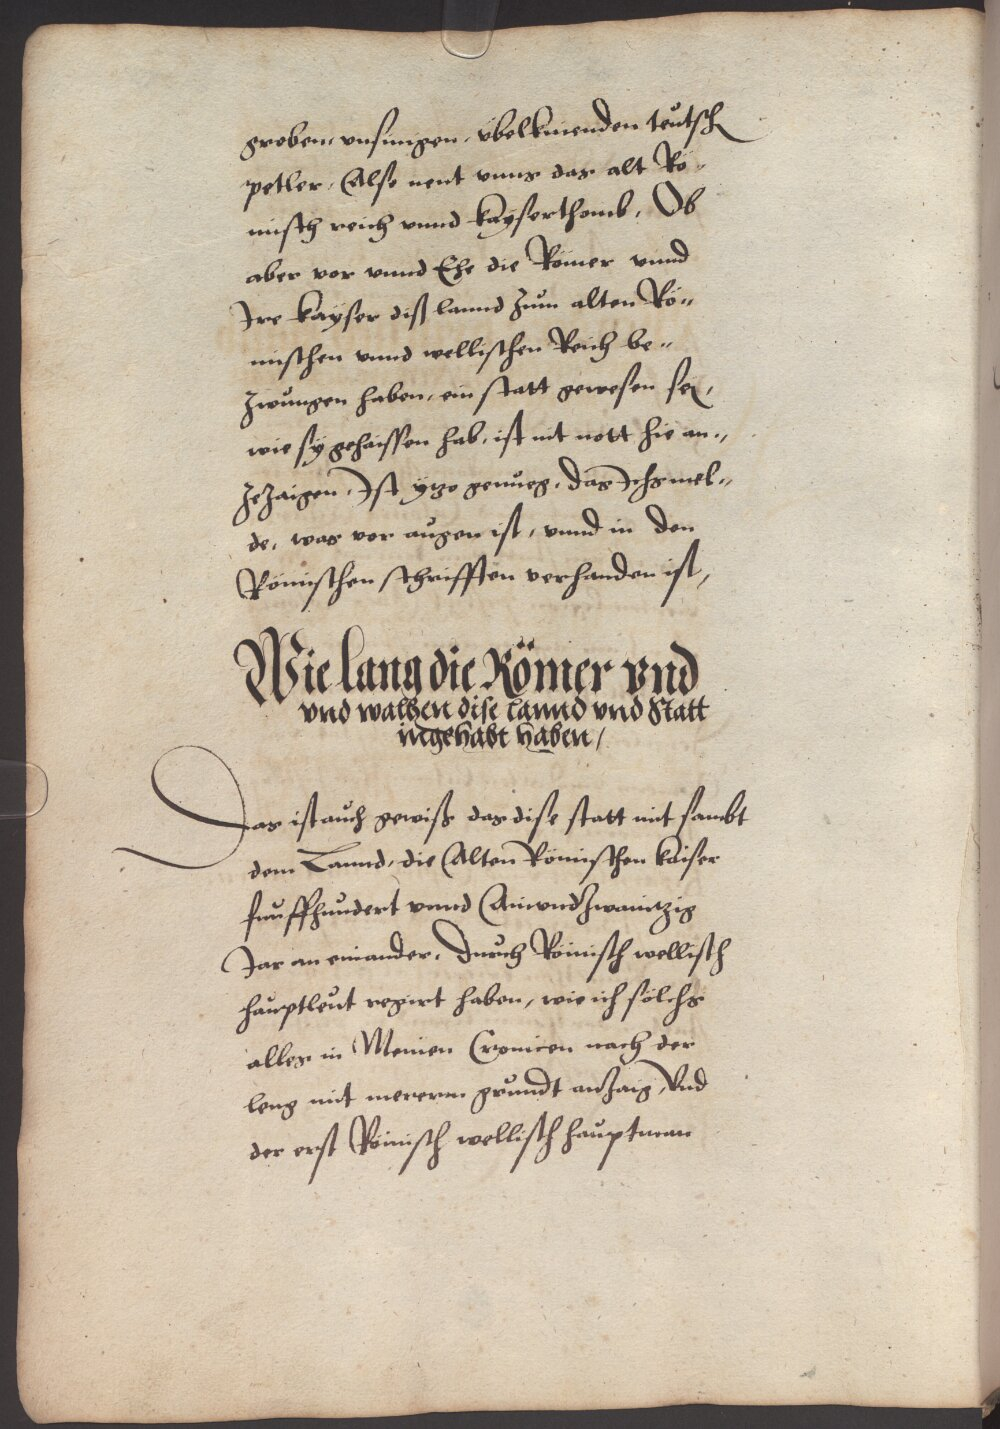 groben, vnsinigen, übelkinenden teütsch
petler, Also nent vnns das alt Rö-
misch reich vnnd kayserthomb, Ob
aber vor vnnd Ehe die Römer vnnd
Ire kayser diß lannd zum alten Rö-
mischen vnnd wellischen Reich be-
zwungen haben, ein statt gewesen sey,
wie sy gehaissen hab, ist nit nott hie an-
zezaigen, Ist yzo genueg, das Ichs mel-
de, was vor augen ist, vnnd in den
Römischen schrifften verhanden ist,
Wie lang die Römer vnd
vnd walhen dise lannd vnd Statt
ingehabt haben,
Das ist auch gewiß das dise statt mit sambt
dem Lannd, die Alten Römischen kaiser
funffhundert vnnd Ainvndzwaintzig
Jar an einander, Durch Römisch wellisch
haüptleüt regirt haben, wie ich sölchs
alles in Meinen Cronicen nach der
leng mit mererm grundt anzaig, Vnd
der erst Römisch wellisch haüptman